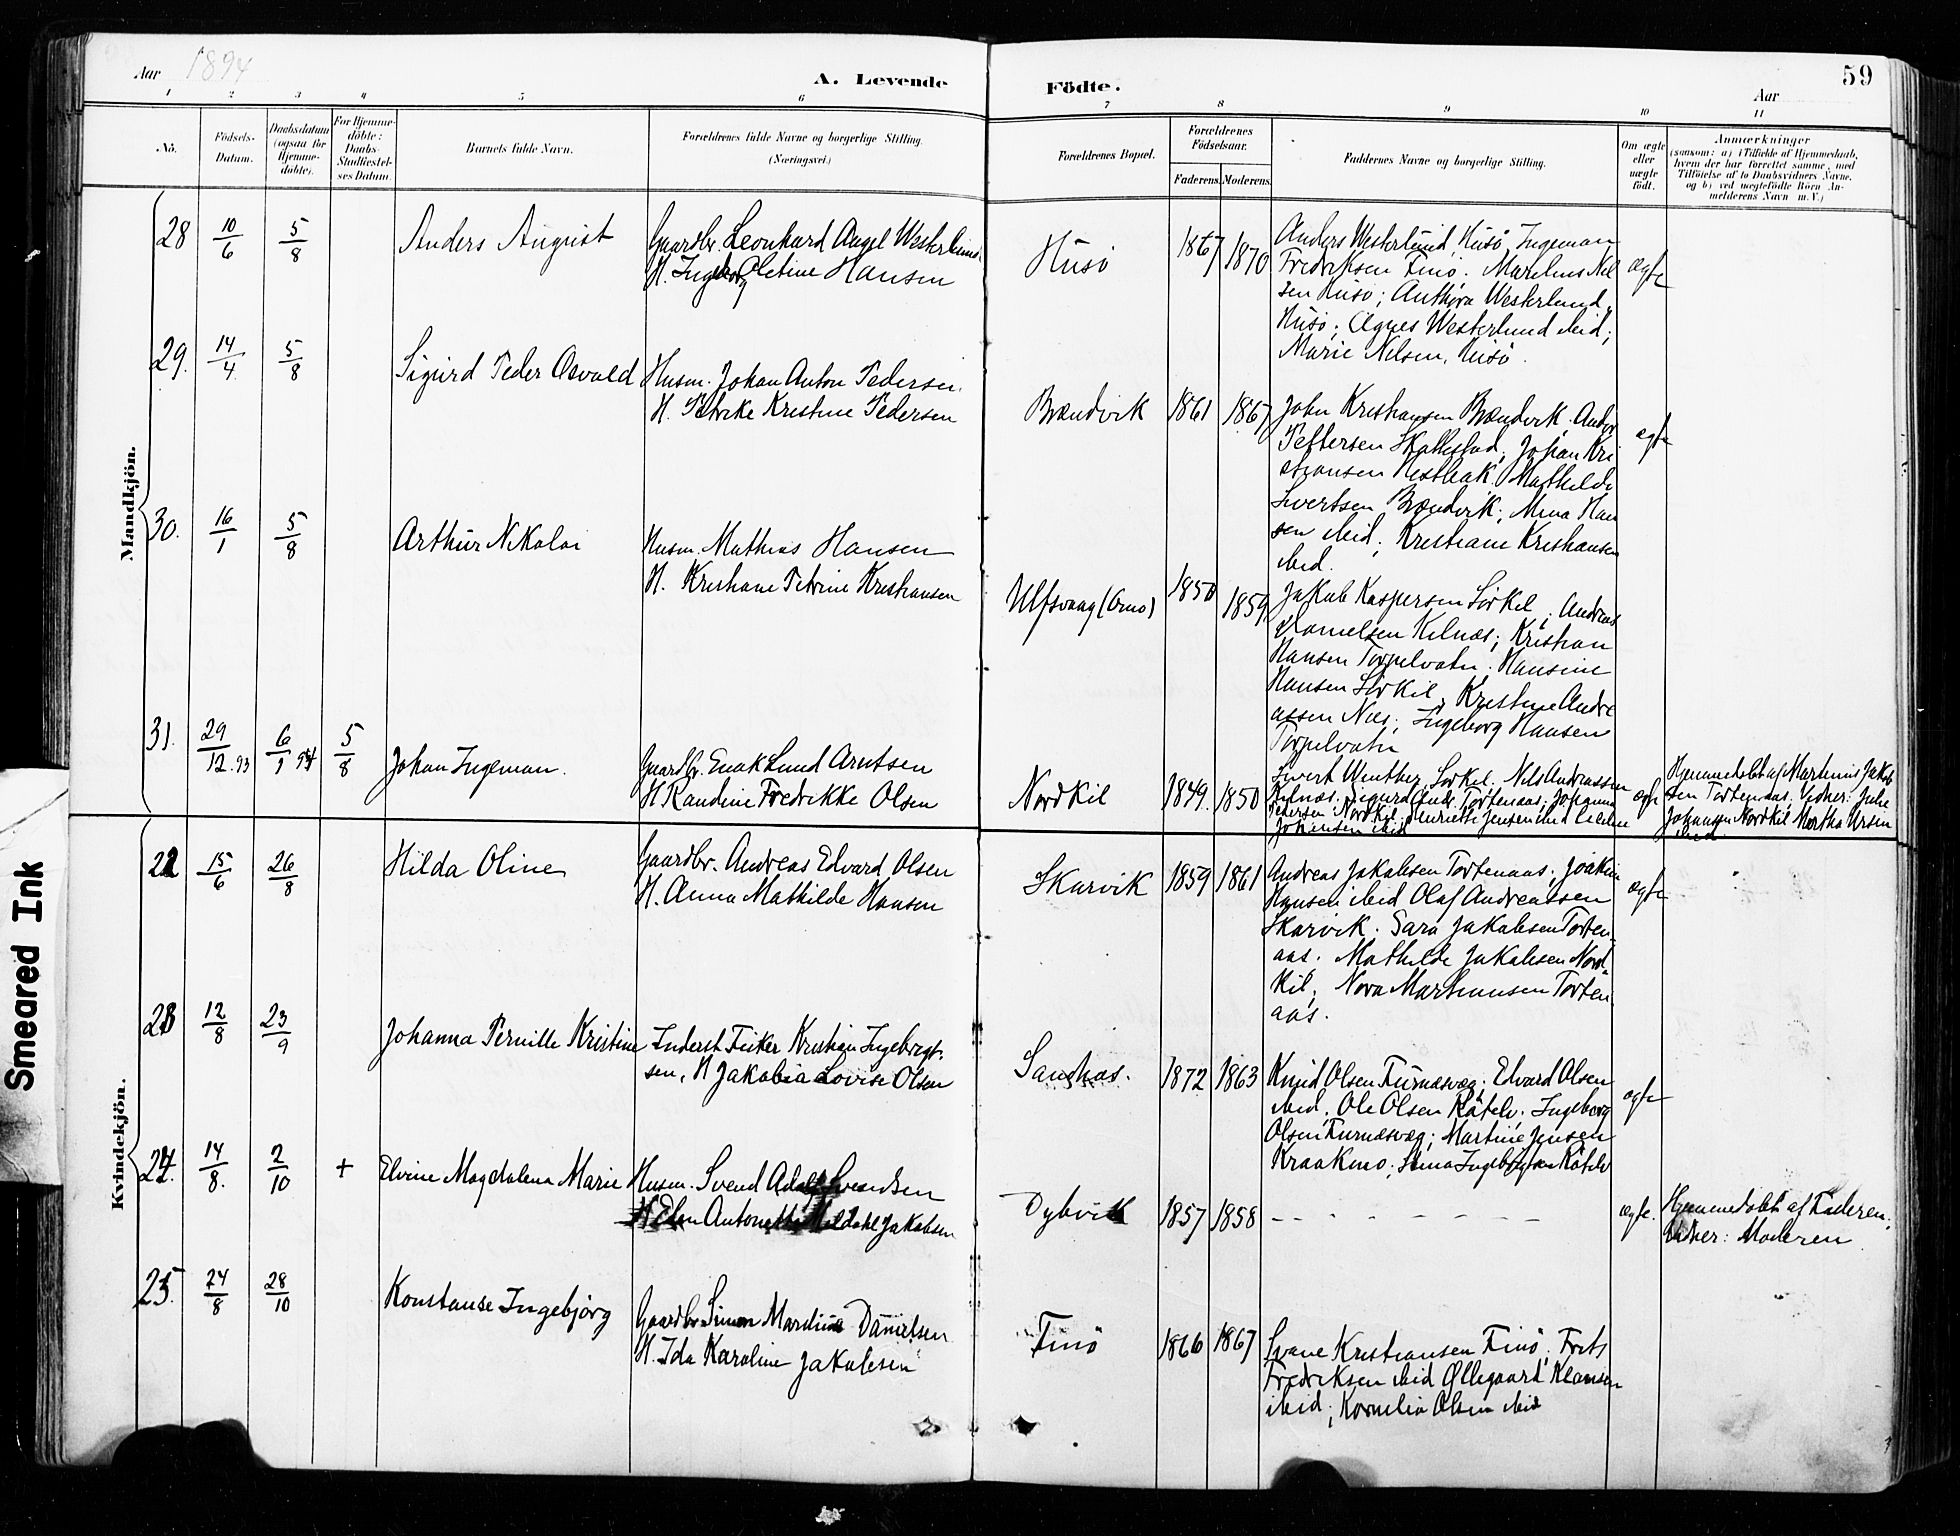 Aar 1894
A. Levende
Födte.
Aar
59
1 2 3 4 5 6 7 8 9 10 11
Nö.
Födsels-Datum.
Daabsdatum (ogsaa for Hjemme-döbte).
For Hjemme-döbte: Daabs-Stadfæstel-ses Datum.
Barnets fulde Navn.
Forældrenes fulde Navne og borgerlige Stilling.
(Næringsvei.)
Forældrenes Bopæl.
Forældrenes Födselsaar.
Faderens. Moderens.
Faddernes Navne og borgerlige Stilling.
Om ægte eller uægte födt.
Anmærkninger
(saasom: a) i Tilfælde af Hjemmedaab,
hvem der har forrettet samme, med
Tilföielse af to Daabsvidners Navne,
og b) ved uægtefödte Börn An-
melderens Navn m. V.)
Mandkjön.
28 10/6 5/8 Anders August
Gaardbr. Leonhard Angel Westerlund
H. Ingeborg Oletine Hansen
Husö 1867 1870
Anders Westerlund, Husö, Ingeman
Fredriksen Finö. Marelius Nil
sen Husö; Anthora Westerlund,
Husö; Agnes Westerlund ibid;
Marie Nilsen, Husö.
ægte
29. 14/4 5/8 Sigurd Peder Osvald
Husm. Johan Anton Pedersen.
H. Petrike Kristine Pedersen
Brændvik 1861 1867
John Kristiansen Brændvik, Andor
Pettersen Skattestad, Johan Kri
stiansen Mathilde
Sivertsen Brændvik; Mina Han
sen ibid; Kristiane Kristiansen
ibid.
ægte
30. 16/1 5/8 Arthur Nikolai
Husm. Mathias Hansen
H. Kristiane Petrine Kristiansen
Ulfsvaag (Arnö) 1850 1859
Jakob Kaspersen Sörkil; Andreas
Danielsen Kilnæs; Kristian
Hansen Torpelvatn. Hansine
Hansen Sörkil, Kristine Andre
assen Næs; Ingeborg Hansen
Torpelvatn
31. 29/12.93 6/1 94 5/8 Johan Ingeman.
Gaardbr. Enok Lund Arntsen
H Randine Fredrikke Olsen
Nordkil 1849 1850
Sivert Winther Sörkil, Nils Andreassen
Kilnæs. Sigurd Andr. Tortenaas; Johanna
Pedersen Nordkil, Henriette Jensen ibid
Johansen ibid
ægte
Hjemmedöbt af Martinus Jakob
sen Tortenaas. Vidner: Julie
Johansen Nordkil Martha Ursin
ibid
Kvindekjön.
22 15/6 26/8 Hilda Oline
Gaardbr. Andreas Edvard Olsen
H. Anna Mathilde Hansen
Skarvik 1859 1861
Andreas Jakobsen Tortenaas; Joakim
Hansen ibid Olaf Andreassen
Skarvik. Sara Jakobsen Torten
aas. Mathilde Jakobsen Nord
kil; Nora Martinusen Torten
aas.
ægte
23 12/8 23/9 Johanna Pernille Kristine
Inderst Fisker Kristian Ingebrigt-
sen, H Jakobia Lovise Olsen
Sandnæs. 1872 1863
Knud Olsen Furnesvæg; Edvard Olsen
ibid; Ole Olsen Råtelv. Ingeborg
Olsen Furnesvæg; Martine Jensen
Kraakmo; Råtelv
ægte
24. 14/8. 2/10 + Elvine Magdalena Marie
Husm. Svend Adolf Svendsen
H Elen Antonette Jakobsen
Dybvik 1857 1858
– – – – – – – –
ægte.
Hjemmedöbt af Faderen.
Vidner: Moderen
25. 24/8 28/10 Konstanse Ingebjörg
Gaardbr Simon Danielsen
H. Ida Karoline Jakobsen
Finö 1866 1867
Svane Kristiansen Finö; Frits
Fredriksen ibid Ollegaard Klausen
ibid; Kornelia Olsen ibid
Smeared Ink